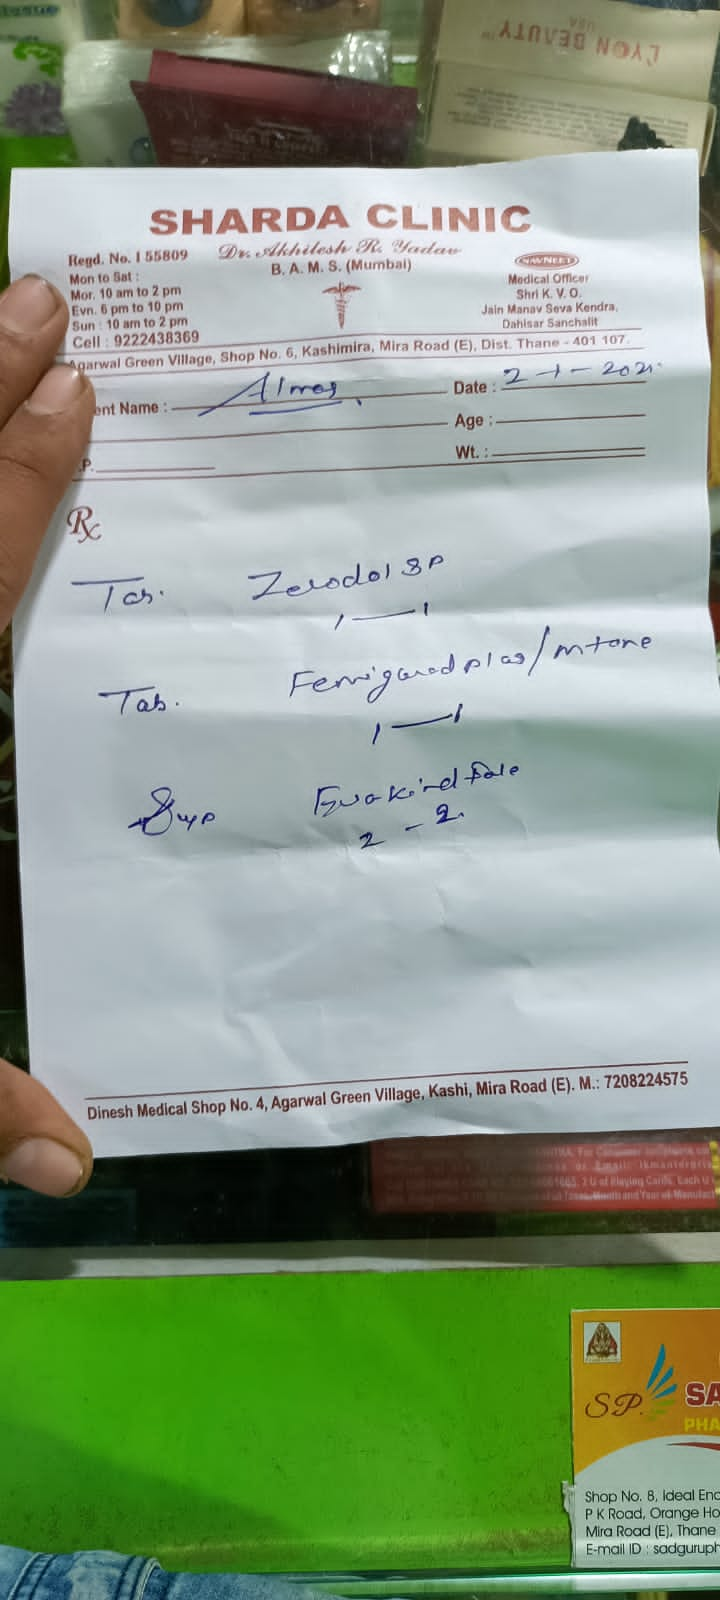 LYON BEAUTY
USA
SHARDA CLINIC
Regd. No. I 55809
Dr. Akhilesh R. Yadav
B. A. M. S. (Mumbai)
NAVNEET
Mon to Sat :
Mor. 10 am to 2 pm
Evn. 6 pm to 10 pm
Sun : 10 am to 2 pm
Cell : 9222438369
Medical Officer
Shri K. V. O.
Jain Manav Seva Kendra,
Dahisar Sanchalit
Agarwal Green Village, Shop No. 6, Kashimira, Mira Road (E), Dist. Thane - 401 107.
ent Name : Date : 2-1-2021.
Age :
.P. Wt. :
Rx
Tab. Zerodol SP
1—1
Tab. plas/mtone
1—1
Syp
2 - 2.
Dinesh Medical Shop No. 4, Agarwal Green Village, Kashi, Mira Road (E). M.: 7208224575
SP.
SA
PHA
Shop No. 8, Ideal Enc
P K Road, Orange Ho
Mira Road (E), Thane
E-mail ID : sadguruph